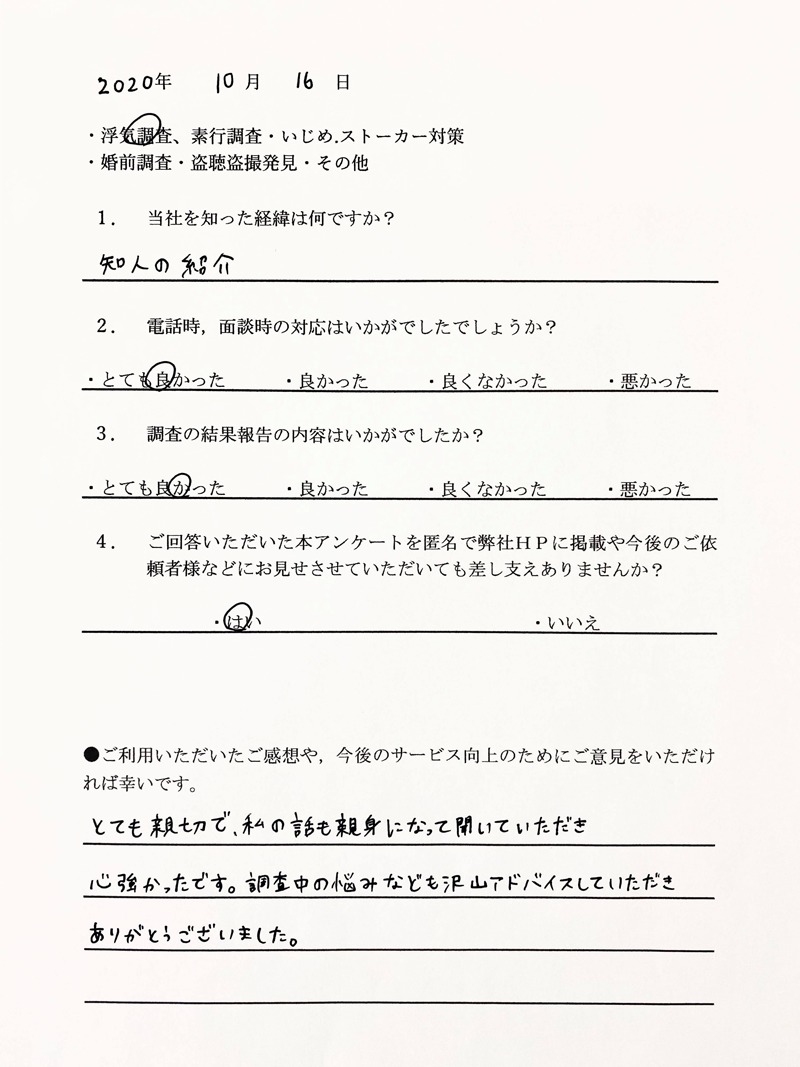 2020年 10月 16日
・浮気調査、素行調査・いじめ.ストーカー対策
・婚前調査・盗聴盗撮発見・その他
1． 当社を知った経緯は何ですか？
知人の紹介
2． 電話時，面談時の対応はいかがでしたでしょうか？
・とても良かった ・良かった ・良くなかった ・悪かった
3． 調査の結果報告の内容はいかがでしたか？
・とても良かった ・良かった ・良くなかった ・悪かった
4． ご回答いただいた本アンケートを匿名で弊社ＨＰに掲載や今後のご依
頼者様などにお見せさせていただいても差し支えありませんか？
・はい ・いいえ
●ご利用いただいたご感想や，今後のサービス向上のためにご意見をいただけ
れば幸いです。
とても親切で、私の話も親身になって聞いていただき
心強かったです。調査中の悩みなども沢山アドバイスしていただき
ありがとうございました。